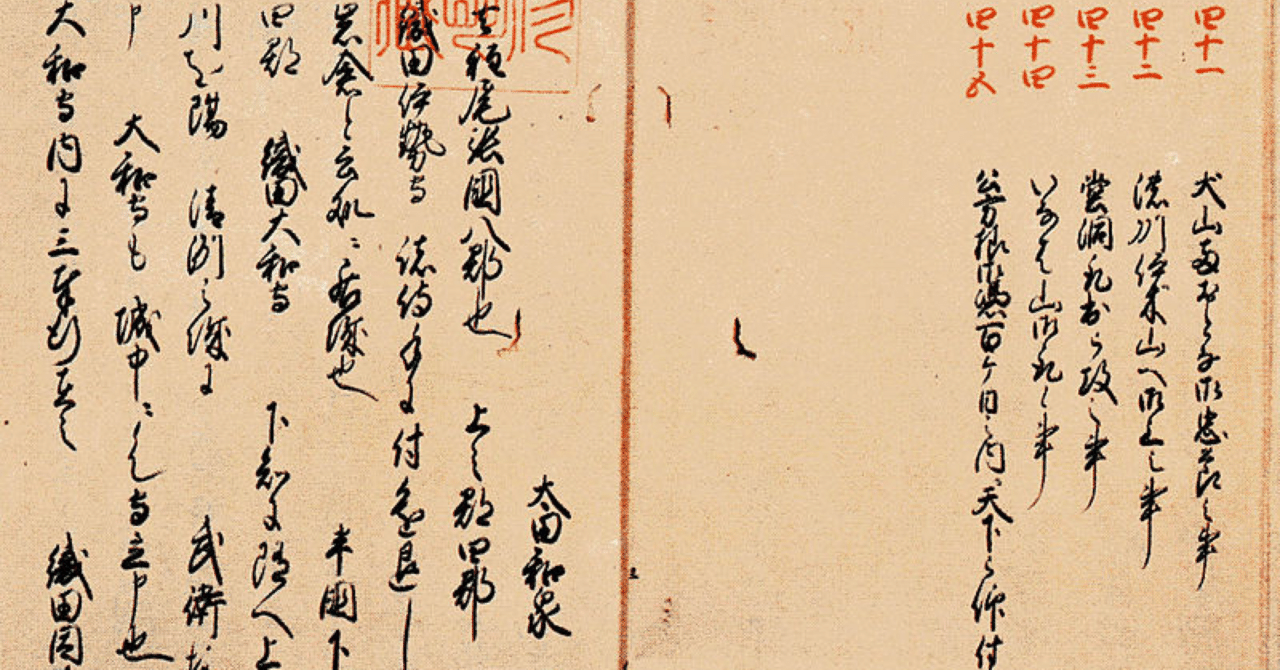 四十一 犬山両おとな御忠節之事
四十二 濃州伊木山へ御上之事
四十三 堂洞取出被攻之事
四十四 いなは山御取候事
四十五 公方様御憑百ヶ日之内ニ天下被仰付
太田和泉
去程尾張國八郡也 上之郡四郡
織田伊勢守 諸侍手に付進退し
岩倉と云処ニ居城也 半國下
四郡 織田大和守 下知に随へ上
川を隔 清洲之城に 武衛
申 大和守も 城中ニ候て守立申也
大和守内に三奉行在之 織田因